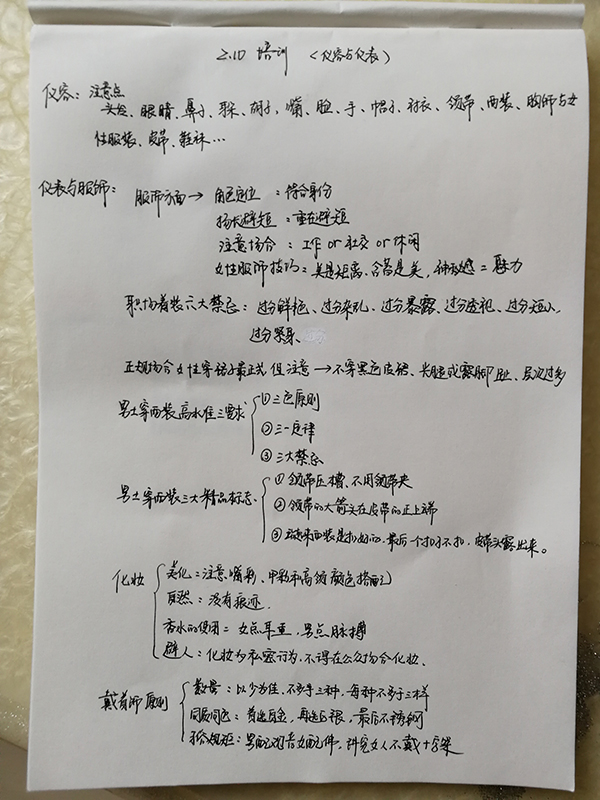 2.10 培训 (仪容与仪表)
仪容: 注意点
头发、眼睛、鼻子、耳朵、胡子、嘴、脸、手、帽子、衬衣、领带、西装、胸饰与女
性服装、皮带、鞋袜…
仪表与服饰:
服饰方面→ 角色定位 : 符合身份
扬长避短 : 重在避短
注意场合 : 工作 or 社交 or 休闲
女性服饰技巧: 美是距离、含蓄是美, = 魅力
职场着装六大禁忌: 过分鲜艳、过分杂乱、过分暴露、过分透视、过分短小、
过分紧身、
正规场合女性穿裙子最正式 但注意 → 不穿黑色皮裙、光腿或露脚趾、层次过多
男士穿西装高水准三要求
① 三色原则
② 三一定律
③ 三大禁忌
男士穿西装三大精品标志:
① 领带压槽、不用领带夹
② 领带的大箭头在皮带的正上端
③ 站起来西装是扣好的, 最后一个扣子不扣, 皮带头露出来。
化妆
美化: 注意嘴彩、甲彩和高级颜色搭配
自然: 没有痕迹.
香水的使用= 女点耳垂, 男点脉搏
避人: 化妆为私密行为, 不得在公众场合化妆、
戴首饰原则
数量: 以少为佳, 不多于三种, 每种不多于三样
同质同色: 首选白色, 再选白银, 最后不锈钢
男配 女配 , 讲究女人不戴十字架